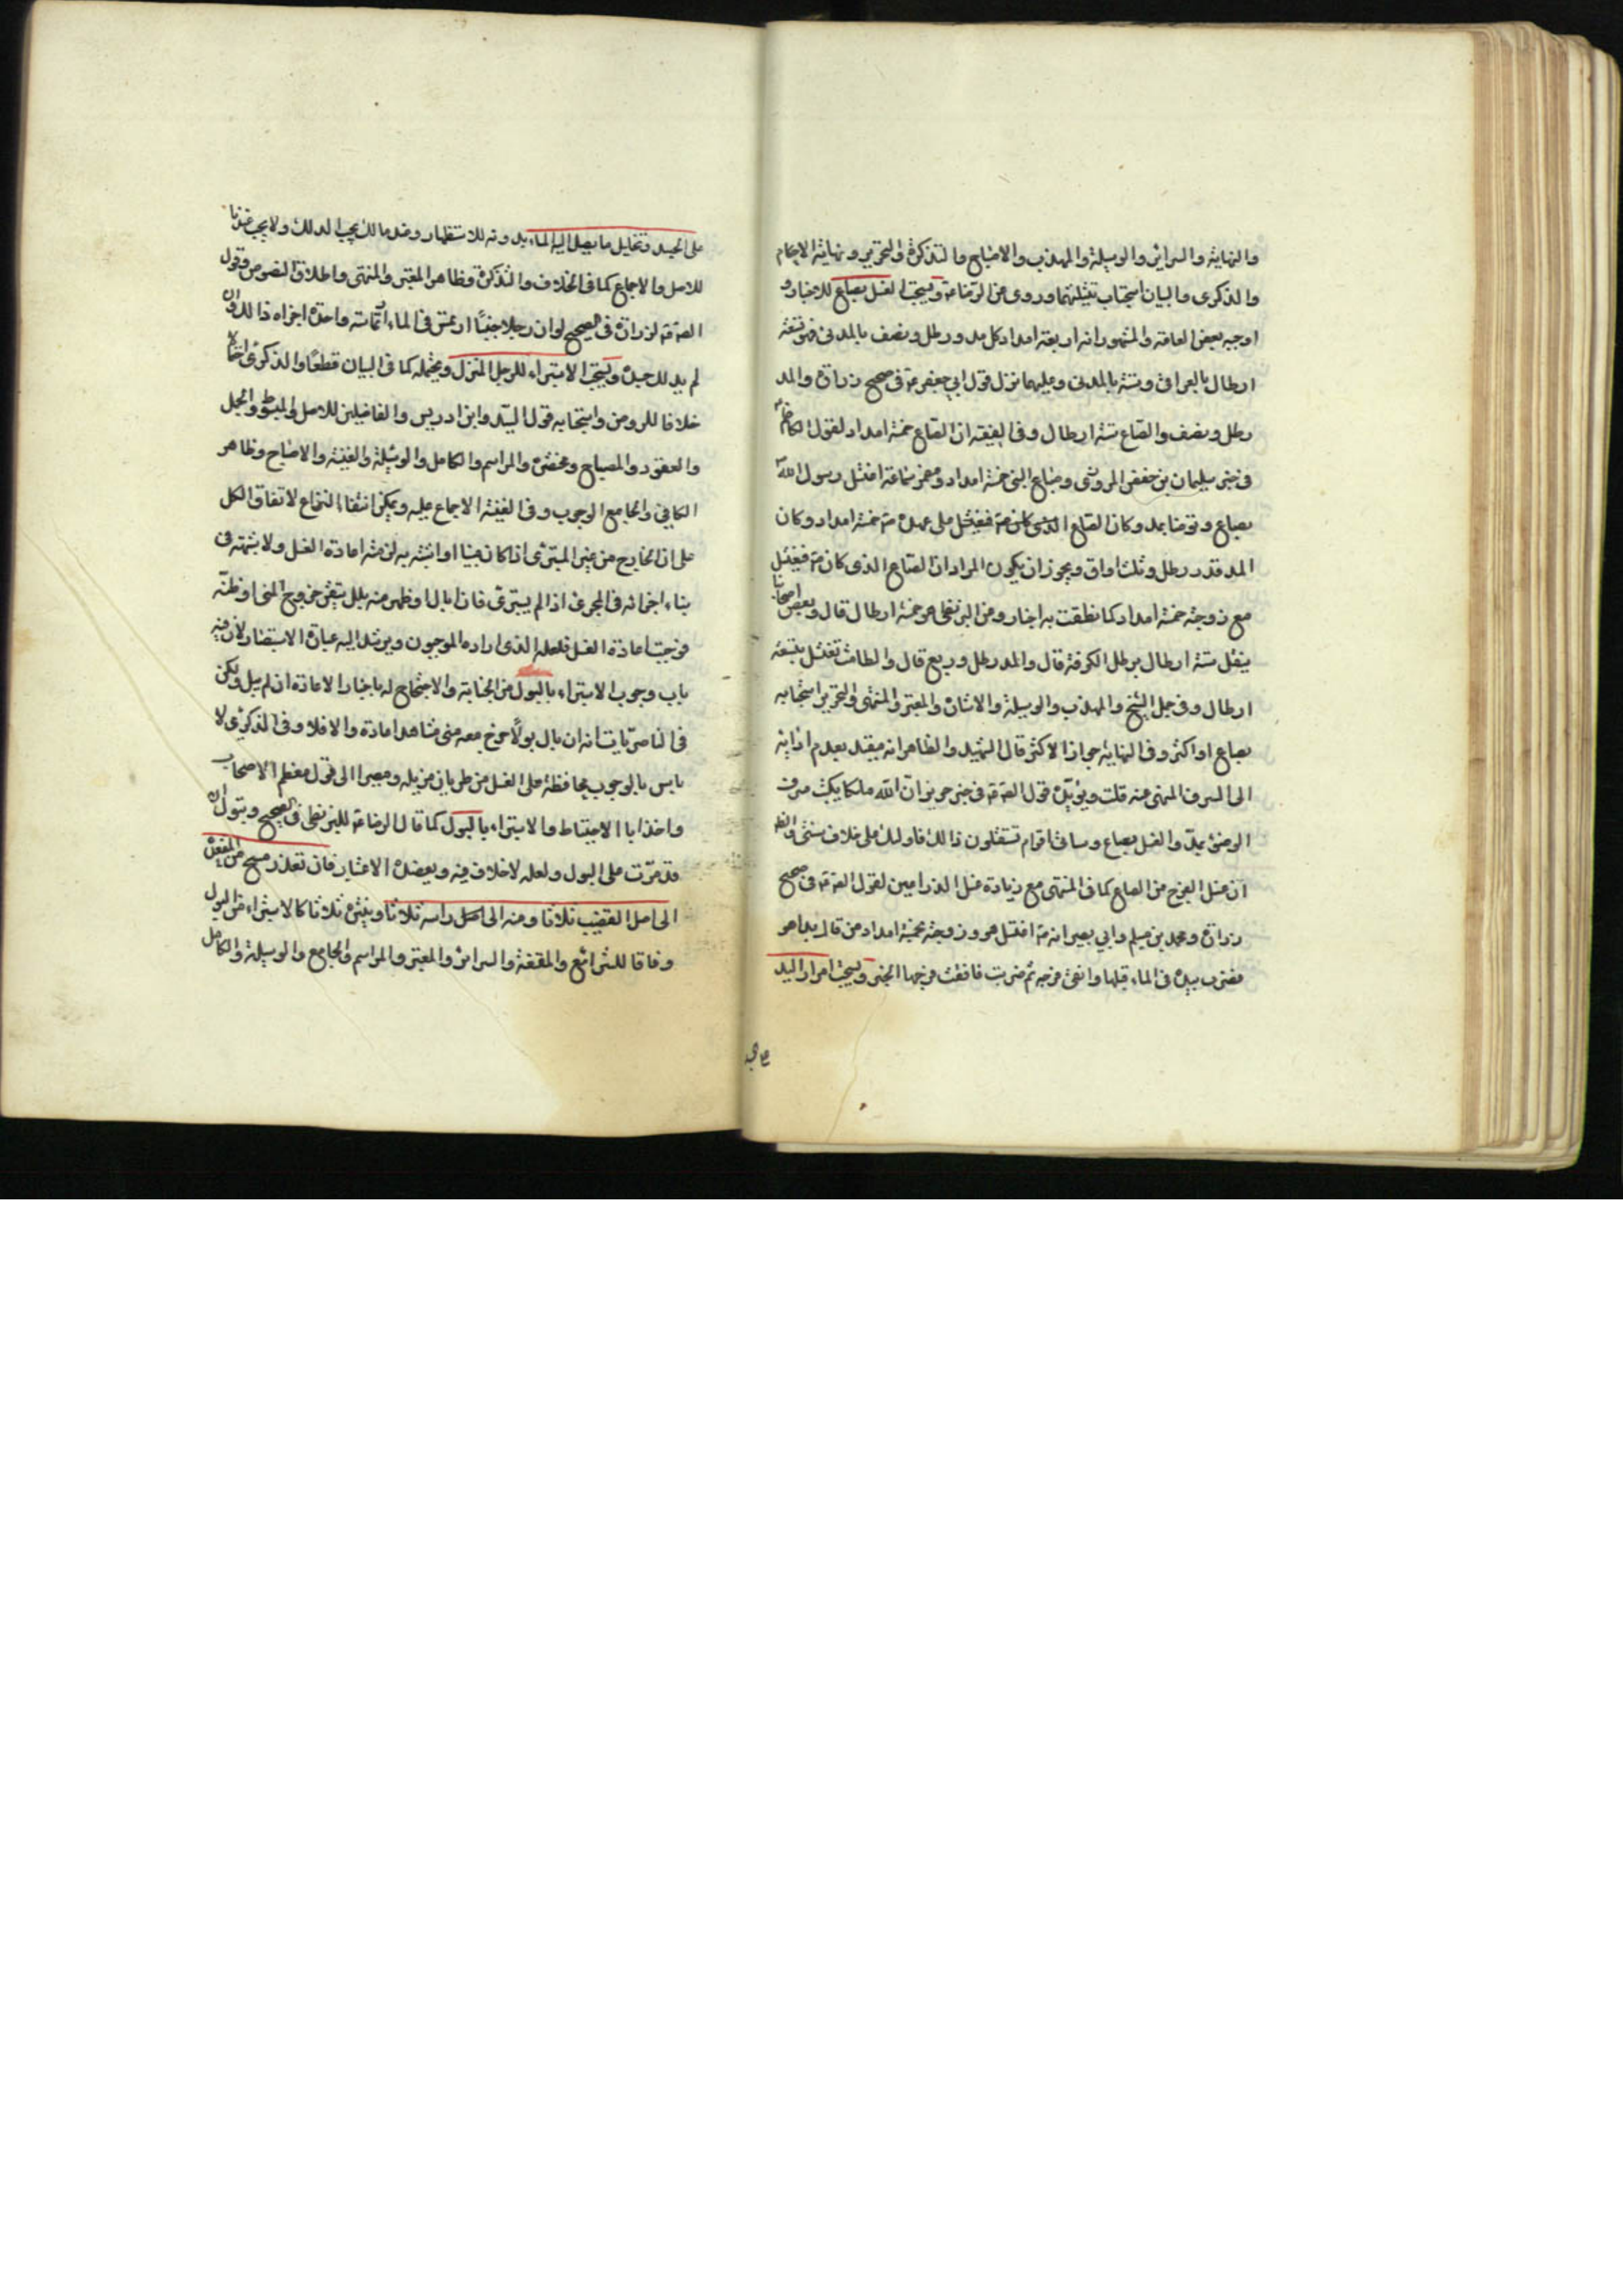 والنهاية والسرائر والوسيلة والمهذب والاصباح والتذكرة والتحرير ونهاية الاحكام
والذكرى والبيان استحباب تثليثهما وروى عن الرضا ع ويستحب الغسل بصاع للاخبار و
اوجبه بعض العامة والمشهور انه اربعة امداد كل مد رطل ونصف بالمدني فهو تسعة
ارطال بالعراقي وستة بالمدني وعليهما نزل قول ابي جعفر ع في صحيح زرارة والمد
رطل ونصف والصاع ستة ارطال وفي الفقيه ان الصاع خمسة امداد لقول الكاظم ع
في خبر سليمان بن حفص المروزي وصاع النبي خمسة امداد ومضمر سماعة اغتسل رسول الله ص
بصاع وتوضا بمد وكان الصاع على عهده ص خمسة امداد وكان
المد قدر رطل وثلث اواق ويجوز ان يكون المراد ان الصاع الذي كان ص يغتسل
مع زوجته خمسة امداد كما نطقت به اخبار وعن البزنطي هو خمسة ارطال قال وبعض اصحابنا
ينقل ستة ارطال برطل الكوفة قال والمد رطل وربع قال والطامث تغتسل بتسعة
ارطال وفي جمل الشيخ والمهذب والوسيلة والاشارة والمعتبر والمنتهى والتحرير استحبابه
بصاع او اكثر وفي النهاية جواز الاكثر قال الشهيد والظاهر انه مقيد بعدم ادائه
الى السرف المنهي عنه قلت ويؤيده قول الصادق ع في خبر حريز ان الله ملكا يكتب سرف
الوضوء بمد والغسل بصاع وسياتي اقوام يستقلون ذالك فاولئك على خلاف سنتي والظاهر
ان غسل الفرج من الصاع كما في المنتهى مع زيادة غسل الذراعين لقول الصادق ع في صحيح
زرارة ومحمد بن مسلم وابي بصير انه ص اغتسل هو وزوجته بخمسة امداد من قال بدا هو
فضرب بيده في الماء قبلها وانقى فرجه ثم ضربت فانقت فرجها الخبر ويستحب امرار اليد
على الجسد وتخليل ما يصل اليه الماء بدونه للاستظهار وعند مالك يجب الدلك ولا يجب عندنا
للاصل والاجماع كما في الخلاف والتذكرة وظاهر المعتبر والمنتهى واطلاق النصوص وقول
الصادق ع لزرارة في الصحيح لو ان رجلا جنبا ارتمس في الماء ارتماسة واحدة اجزاه ذالك وان
لم يدلك جسده ويستحب الاستبراء للرجل المنزل ويحتمله كما في البيان قطعا والذكرى احتمالا
خلافا للروض واستحبابه قول السيد وابن ادريس والفاضلين للاصل وفي المبسوط والجمل
والعقود والمصباح ومختصره والمراسم والكامل والوسيلة والغنية والاصباح وظاهر
الكافي والجامع الوجوب وفي الغنية الاجماع عليه ويمكن انتفاء النزاع لاتفاق الكل
على ان الخارج من غير المستبرئ اذا كان منيا او اشتبه به لزمته اعادة الغسل ولا شبهة في
بقاء اجزائه في المجرى اذا لم يستبرئ فاذا بال او ظهر منه بلل تيقن خروج المني او ظنه
فوجبت اعادة الغسل فلعله الذي اراده الموجبون ويرشد اليه عبارة الاستبصار لان فيه
باب وجوب الاستبراء بالبول من الجنابة والاحتجاج له باخبار الاعادة ان لم يبل ولكن
في الناصريات انه ان بال بولا خرج معه مني مشاهد اعاده والا فلا وفي الذكرى لا
باس بالوجوب محافظة على الغسل من طريان مزيله ومصيرا الى قول معظم الاصحاب
واخذا بالاحتياط والاستبراء بالبول كما قال الرضا ع للبزنطي في الصحيح وتبول ان
قدرت على البول ولعله لا خلاف فيه ويعضده الاعتبار فان تعذر مسح من المقعدة
الى اصل القضيب ثلاثا ومنه الى راسه ثلاثا وينثره ثلاثا كالاستبراء من البول
وفاقا للشرائع والمقنعة والسرائر والمعتبر والمراسم والجامع والوسيلة والكامل